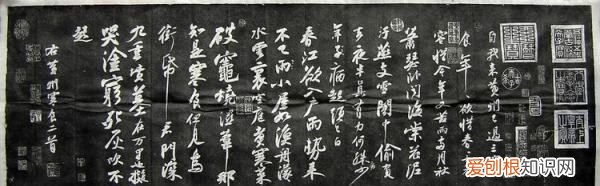 自我來黃州已過三寒
食年〻欲惜春春去不
容惜今年又苦雨兩月秋
蕭瑟臥聞海棠花泥
汙燕支雪闇中偷負
去夜半真有力何殊少
年子病起頭已白
春江欲入戶雨勢來
不已小屋如漁舟濛〻
水雲裏空庖煮寒菜
破竈燒濕葦那
知是寒食但見烏
銜帋君門深
九重墳墓在萬里也擬
哭塗窮死灰吹不
起
右黃州寒食二首
爱刨根知识网